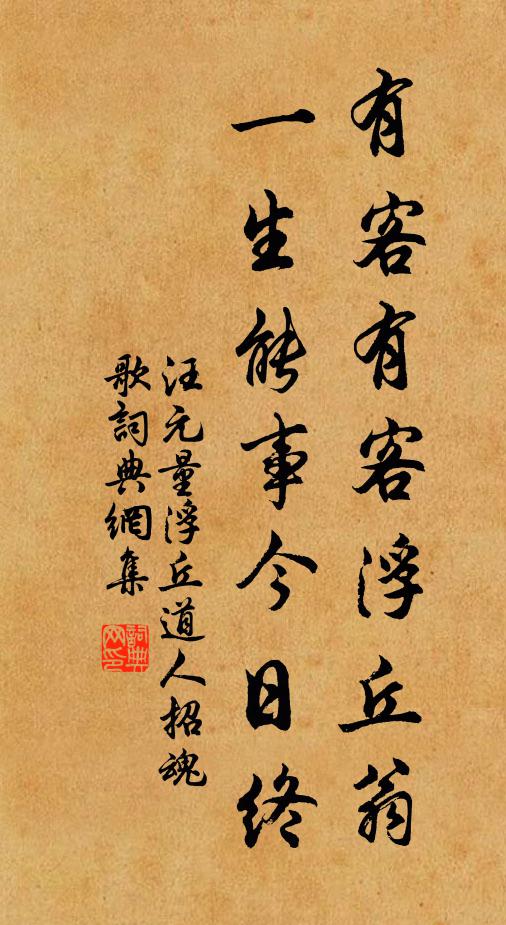 有客有客浮丘翁
一生能事今日終
汪元量浮丘道人招魂
歌詞典網集
詞典網印